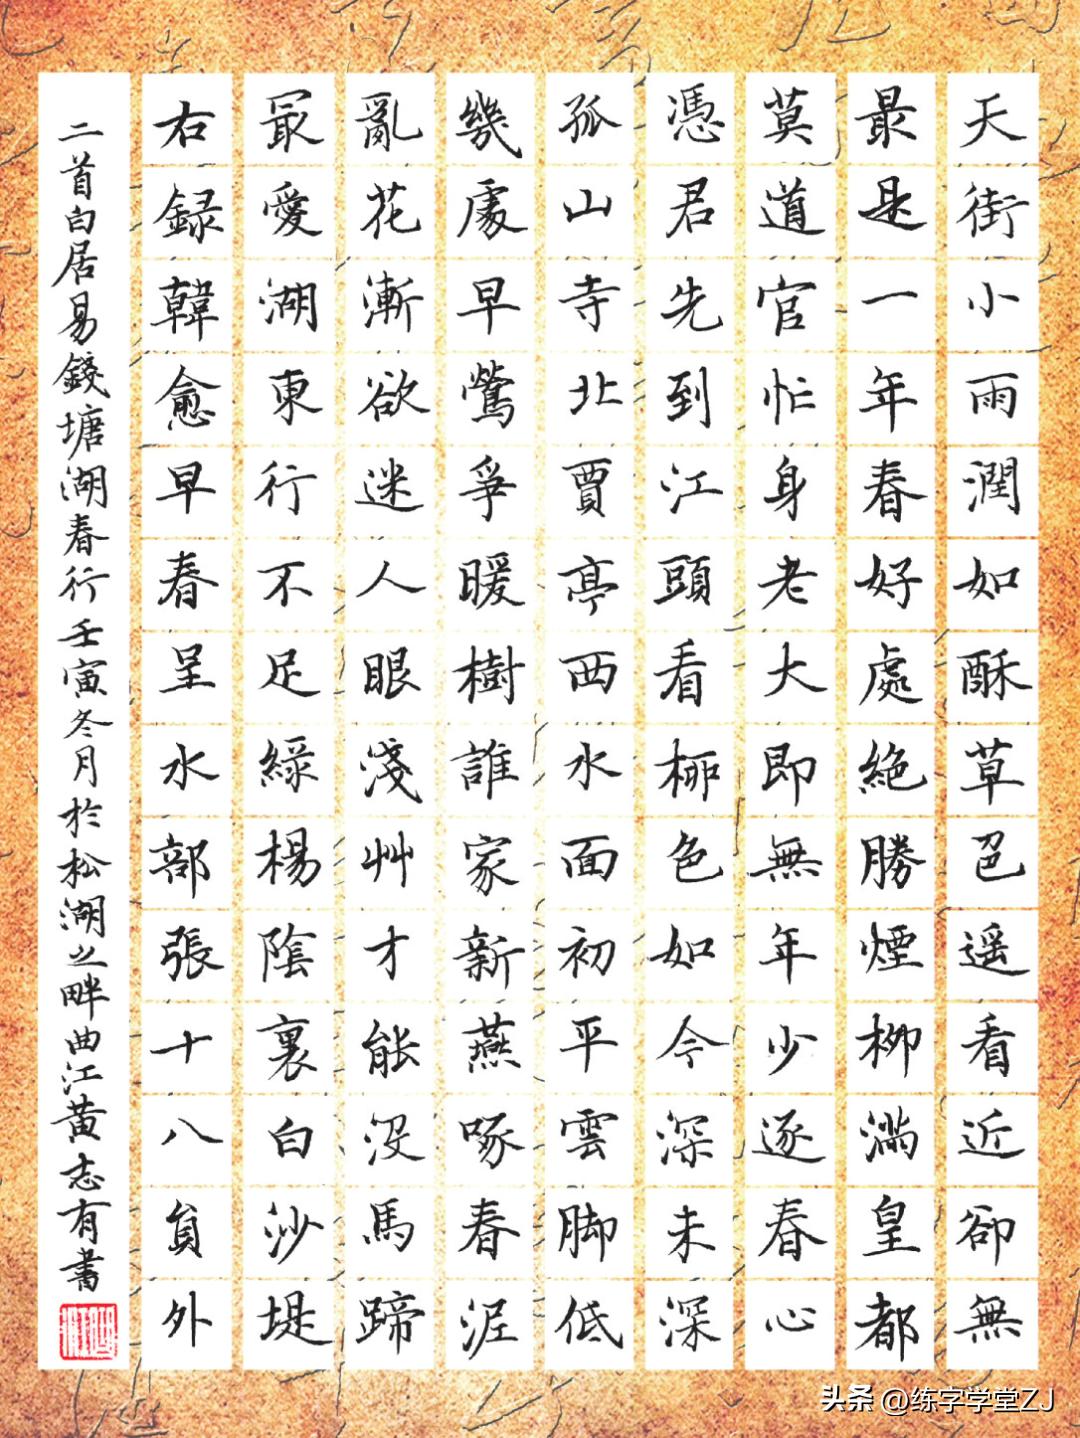 天街小雨潤如酥草色遥看近卻無
最是一年春好處絶勝煙柳滿皇都
莫道官忙身老大即無年少逐春心
憑君先到江頭看柳色如今深未深
孤山寺北賈亭西水面初平雲脚低
幾處早鶯爭暖樹誰家新燕啄春泥
亂花漸欲迷人眼淺艸才能沒馬蹄
最愛湖東行不足綠楊陰裏白沙堤
右録韓愈早春呈水部張十八員外
二首白居易錢塘湖春行壬寅冬月於松湖之畔曲江黄志有書
头条 @练字学堂ZJ